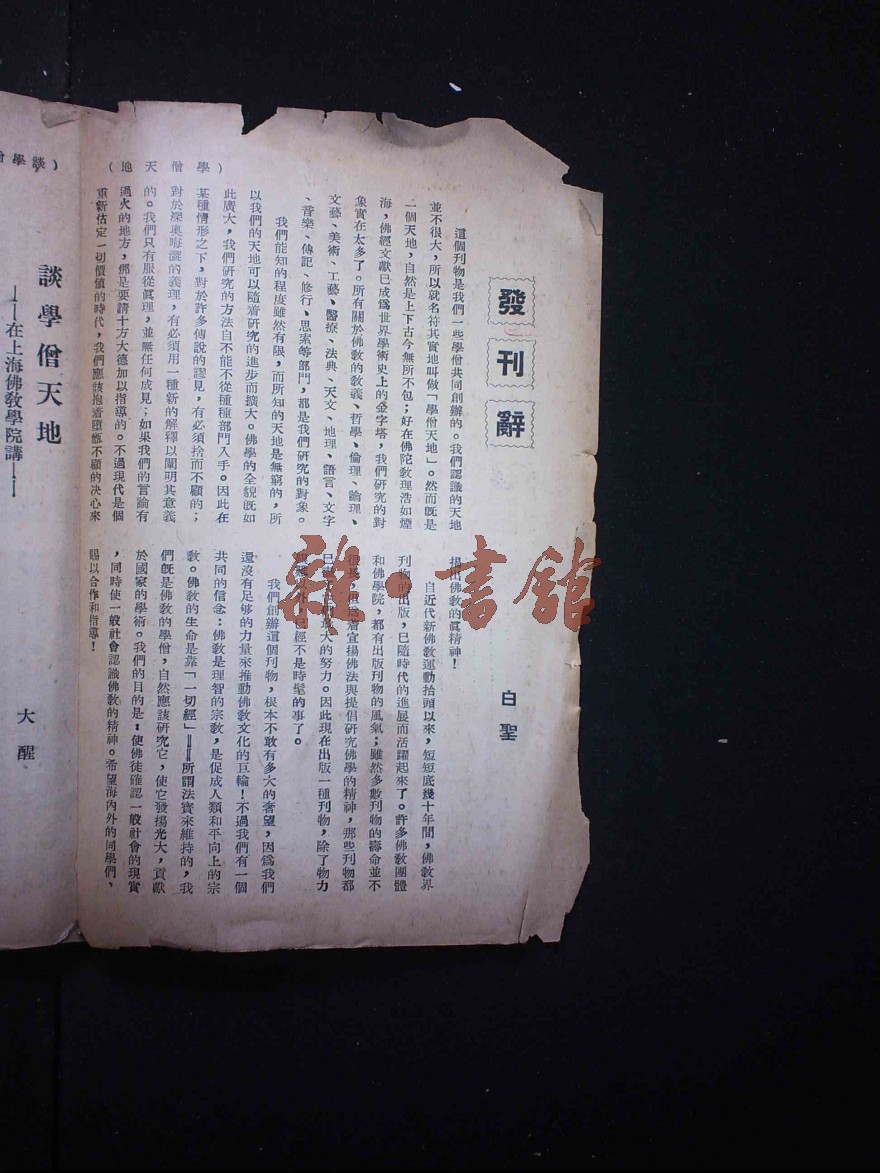 發刊辭
白聖
這個刊物是我們一些學僧共同創辦的。我們認識的天地
並不很大，所以就名符其實地叫做「學僧天地」。然而既是
一個天地，自然是上下古今無所不包；好在佛陀敎理浩如煙
海，佛經文獻已成爲世界學術史上的金字塔，我們研究的對
象實在太多了。所有關於佛敎的敎義、哲學、倫理、論理、
文藝、美術、工藝、醫療、法典、天文、地理、語言、文字
、音樂、傳記、修行、思索等部門，都是我們研究的對象。
我們能知的程度雖然有限，而所知的天地是無窮的，所
以我們的天地可以隨着研究的進步而擴大。佛學的全貌既如
此廣大，我們研究的方法自不能不從種種部門入手。因此在
某種情形之下，對於許多傳說的謬見，有必須捨而不顧的；
對於深奧晦澀的義理，有必須用一種新的解釋以闡明其意義
的。我們只有服從眞理，並無任何成見；如果我們的言論有
過火的地方，那是要請十方大德加以指導的。不過現代是個
重新估定一切價值的時代，我們應該抱着墮甑不顧的決心來
揭出佛敎的眞精神！
自近代新佛敎運動抬頭以來，短短底幾十年間，佛敎界
刊物的出版，已隨時代的進展而活躍起來了。許多佛敎團體
和佛學院，都有出版刊物的風氣；雖然多數刊物的壽命並不
很長，但爲着宣揚佛法與提倡研究佛學的精神，那些刊物都
已大的努力。因此現在出版一種刊物，除了物力
外，已經不是時髦的事了。
我們創辦這個刊物，根本不敢有多大的奢望，因爲我們
還沒有足够的力量來推動佛敎文化的巨輪！不過我們有一個
共同的信念：佛敎是理智的宗敎，是促成人類和平向上的宗
敎。佛敎的生命是靠「一切經」——所謂法寶來維持的，我
們既是佛敎的學僧，自然應該研究它，使它發揚光大，貢獻
於國家的學術。我們的目的是：使佛徒確認一般社會的現實
，同時使一般社會認識佛敎的精神。希望海內外的同學們，
賜以合作和指導！
（學僧天地）
談學僧天地
——在上海佛敎學院講——
大醒
（談學僧